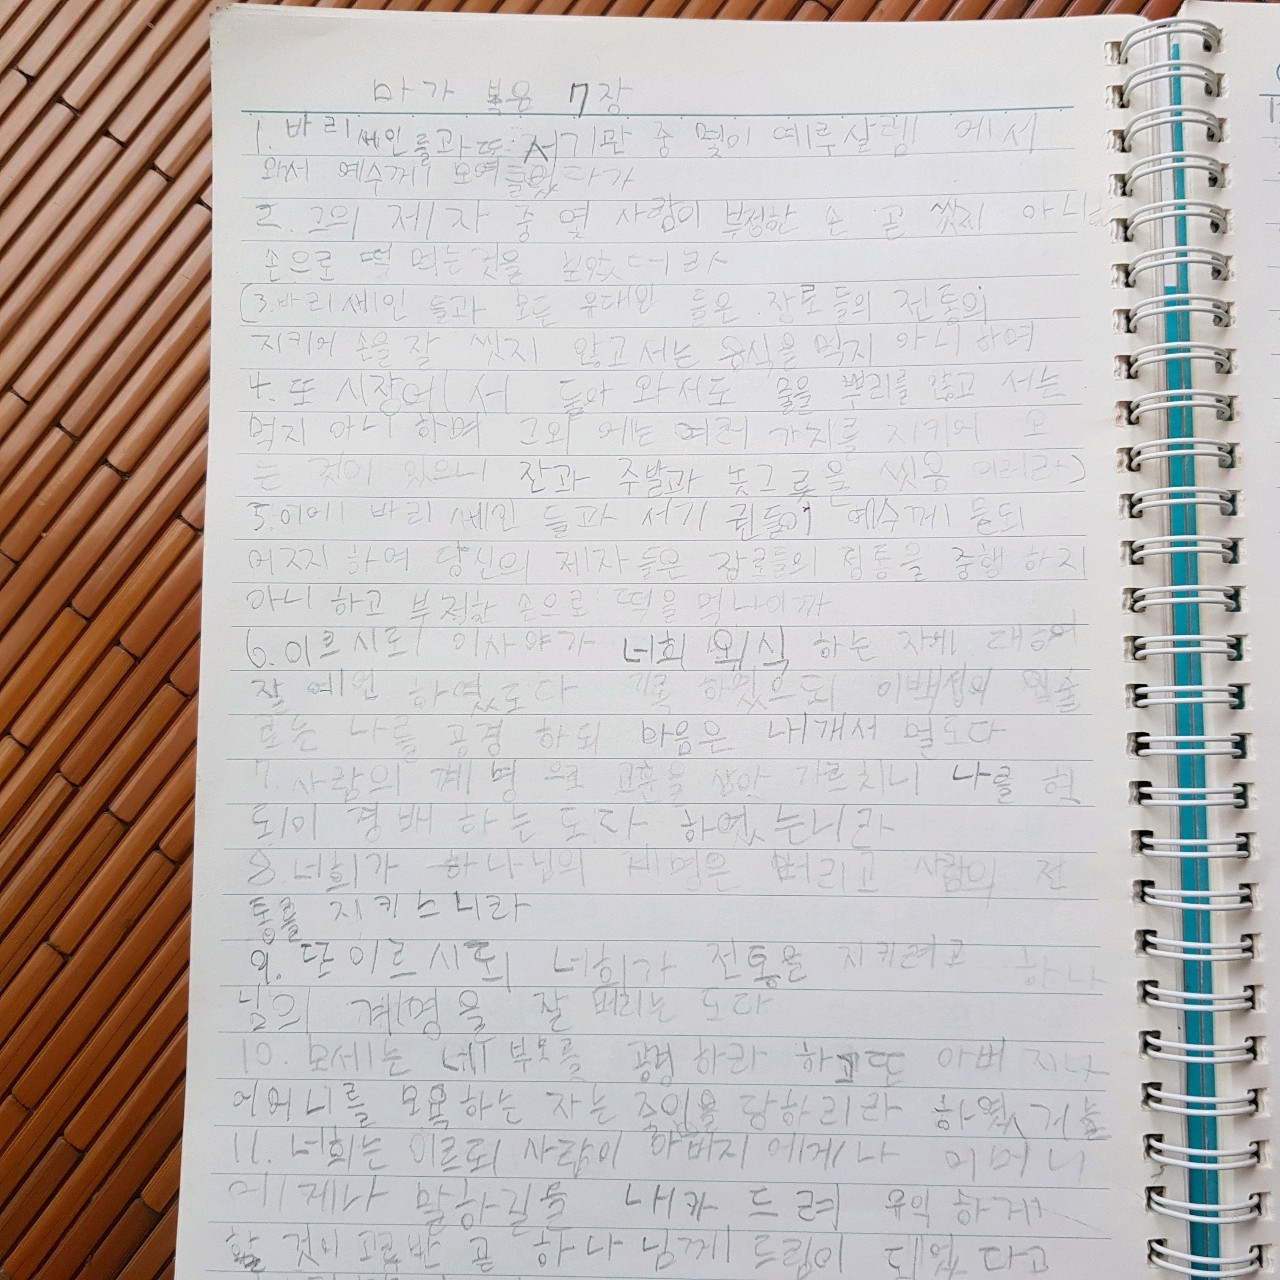 마가 복음 7장
1. 바리세인들과 또 서기관 중 몇이 예루살렘 에서
와서 예수께 모여들었다가
2. 그의 제자 중 몇 사람이 부정한 손 곧 씻지 아니한
손으로 떡 먹는것을 보았더라
(3.바리세인 들과 모든 유대인 들은 장로들의 전통의
지키어 손을 잘 씻지 않고서는 음식을 먹지 아니 하며
4. 또 시장에 서 돌아 와서도 물을 뿌리를 않고 서는
먹지 아니 하며 그외 에는 여러 가지를 지키어 오
는 것이 있으니 잔과 주발과 놋그릇을 씻음 이러라)
5.이에 바리 세인 들과 서기 관들이 예수께 들되
어찌지 하여 당신의 제자들은 장로들의 정통을 중행 하지
아니 하고 부정한 손으로 떡을 먹나이까
6. 이르시되 이사야가 너희 외식 하는 자에 대하여
잘 예언 하였도다 기록 하였으되 이백성이 입술
로는 나를 공경 하되 마음은 내게서 멀도다
7. 사람의 계명 으로 교훈을 삼아 가르치니 나를 헛
되이 경배 하는 도다 하였 느니라
8.너희가 하나님의 계명은 버리고 사람의 전
통을 지키느니라
9. 또이르시되 너희가 전통을 지키려고 하나
님의 계명을 잘 버리는 도다
10. 모세는 네 부모를 공경 하라 하고또 아버 지나
어머니를 모욕하는 자는 죽임을 당하리라 하였거늘
11. 너희는 이르되 사람이 아버지 에게나 어머니
에게나 말하길을 내가 드려 유익 하게
할 것이 고르반 곧 하나님께 드림이 되었 다고